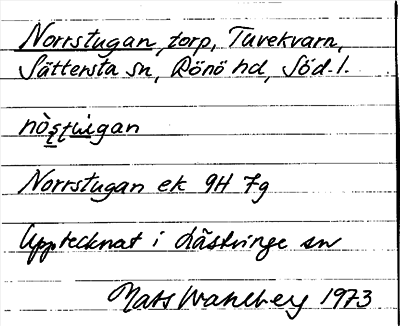 Norrstugan, torp, Tuvekvarn,
Sättersta sn, Rönö hd, Söd. l.
nòs̨t̨ùgan
Norrstugan ek 9H 7g
Upptecknat i Lästringe sn
Mats Wahlberg 1973